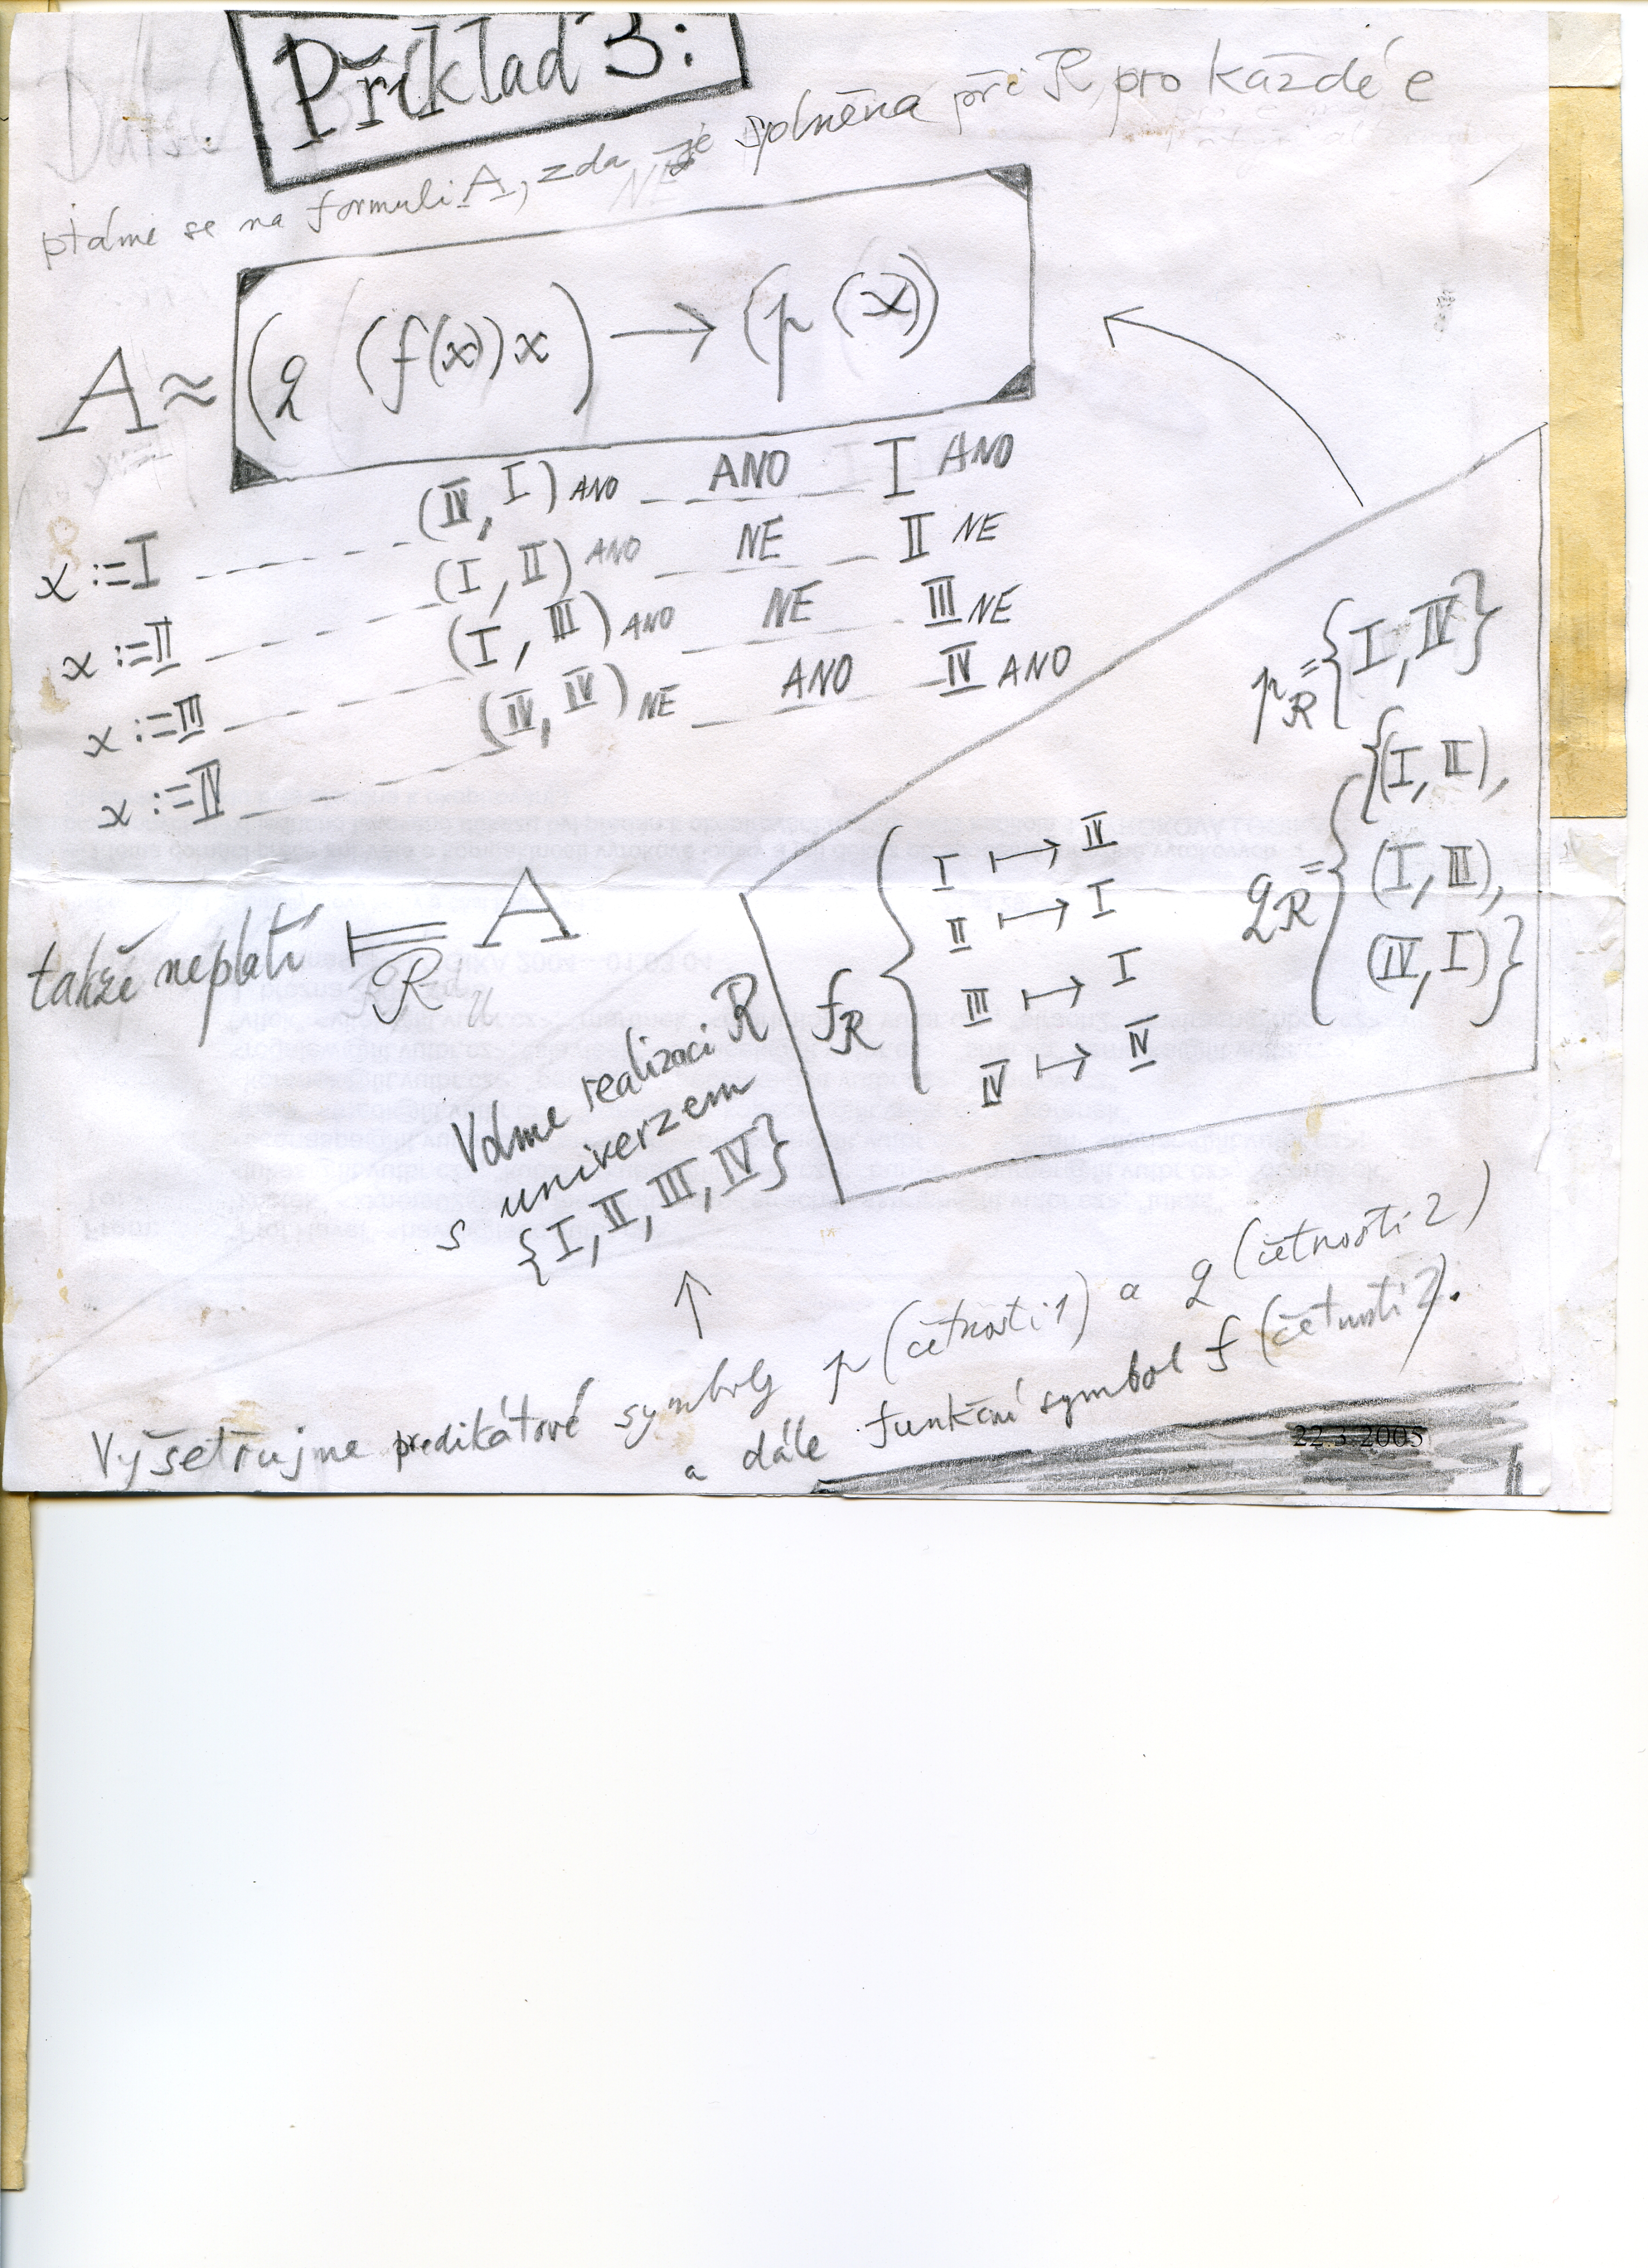 Příklad 3:
ptáme se na formuli A, zda je splněna při R pro každé e
A ≈ (q (f(x))x) → (p (x))
x:=I (IV, I) ANO ANO I ANO
x:=II (I, II) ANO NE II NE
x:=III (I, III) ANO NE III NE
x:=IV (IV, IV) NE ANO IV ANO
takže neplatí ⊨ A
R
Volme realizaci R
s univerzem
{I, II, III, IV}
p_R = {I, IV}
q_R = {(I, II),
(I, III),
(IV, I)}
f_R { I ↦ IV
II ↦ I
III ↦ I
IV ↦ IV
↑
Vyšetřujme predikátové symboly p (četnosti 1) a q (četnosti 2)
a dále funkční symbol f (četnosti 2).
22.3.2005